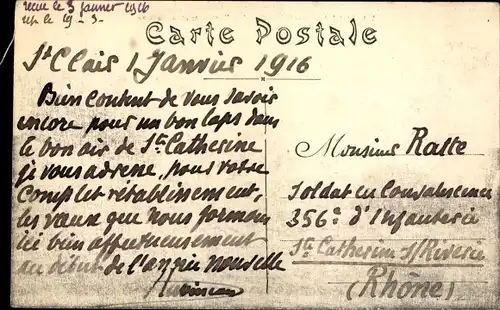 reçue le 3 janvier 1916
rep le 19 - 3 -
Carte Postale
St Clair 1 Janvier 1916
Bien content de vous savoir
encore pour un bon laps dans
le bon air de Ste Catherine
je vous adresse, pour votre
complet rétablissement,
les vœux que nous formons
ici bien affectueusement
au début de l'année nouvelle
Monsieur Ratte
Soldat en Convalescence
356e d'Infanterie
Ste Catherine s/Riverie
(Rhône)